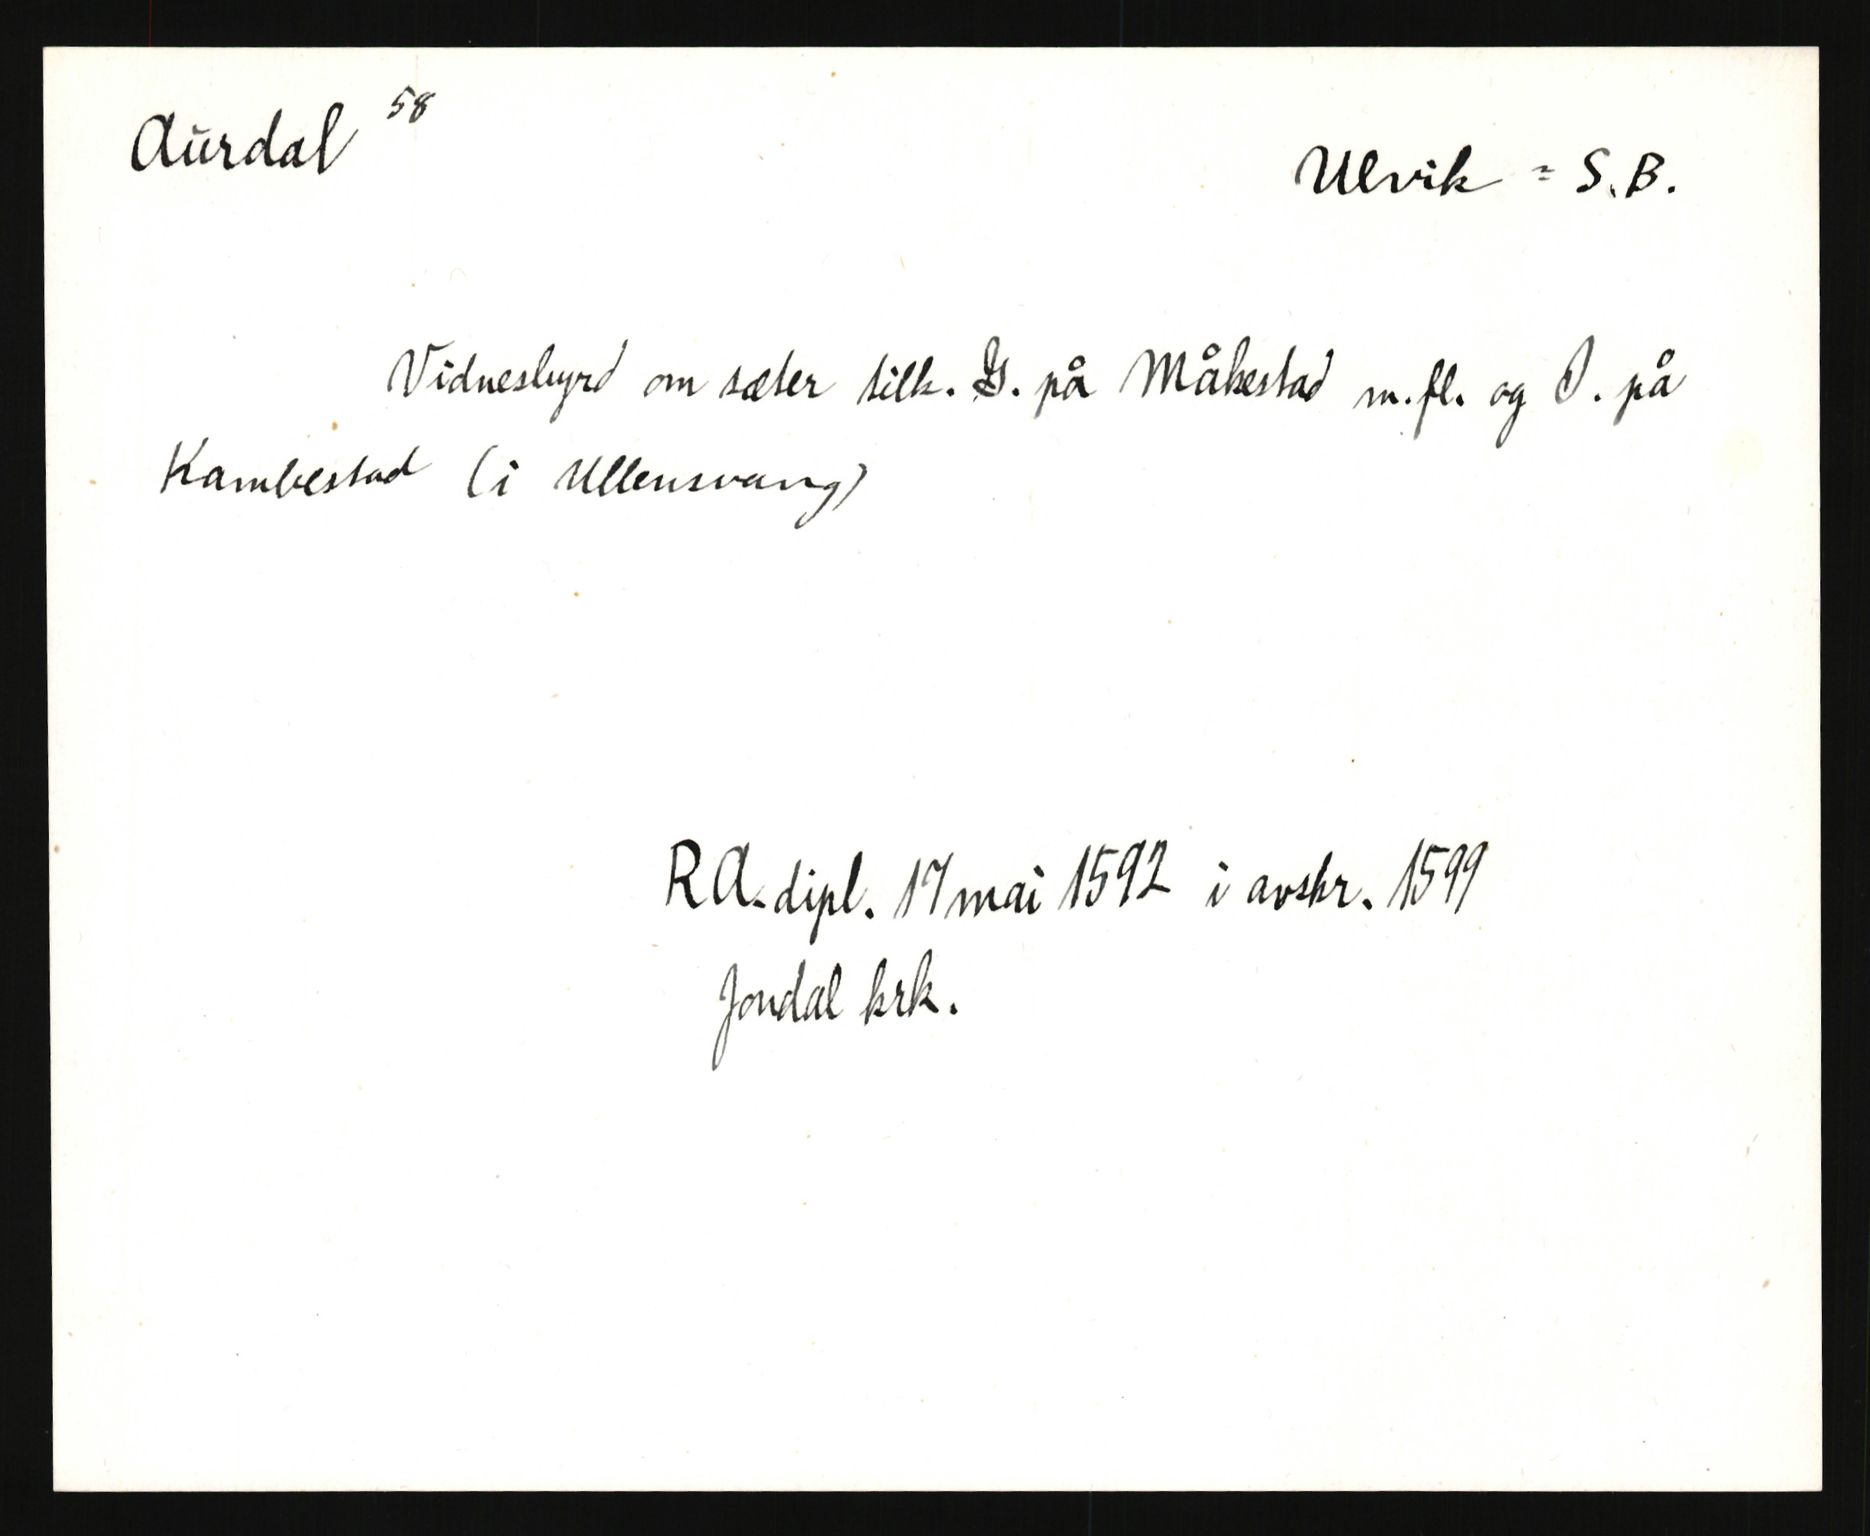 Aurdal 58
Ulvik = S.B.
Vidnesbyrd om sæter tilk. G. på Måkestad m.fl. og O. på
Kambestad (i Ullensvang)
RA. dipl. 17 mai 1592 i avskr. 1599
Jondal krk.